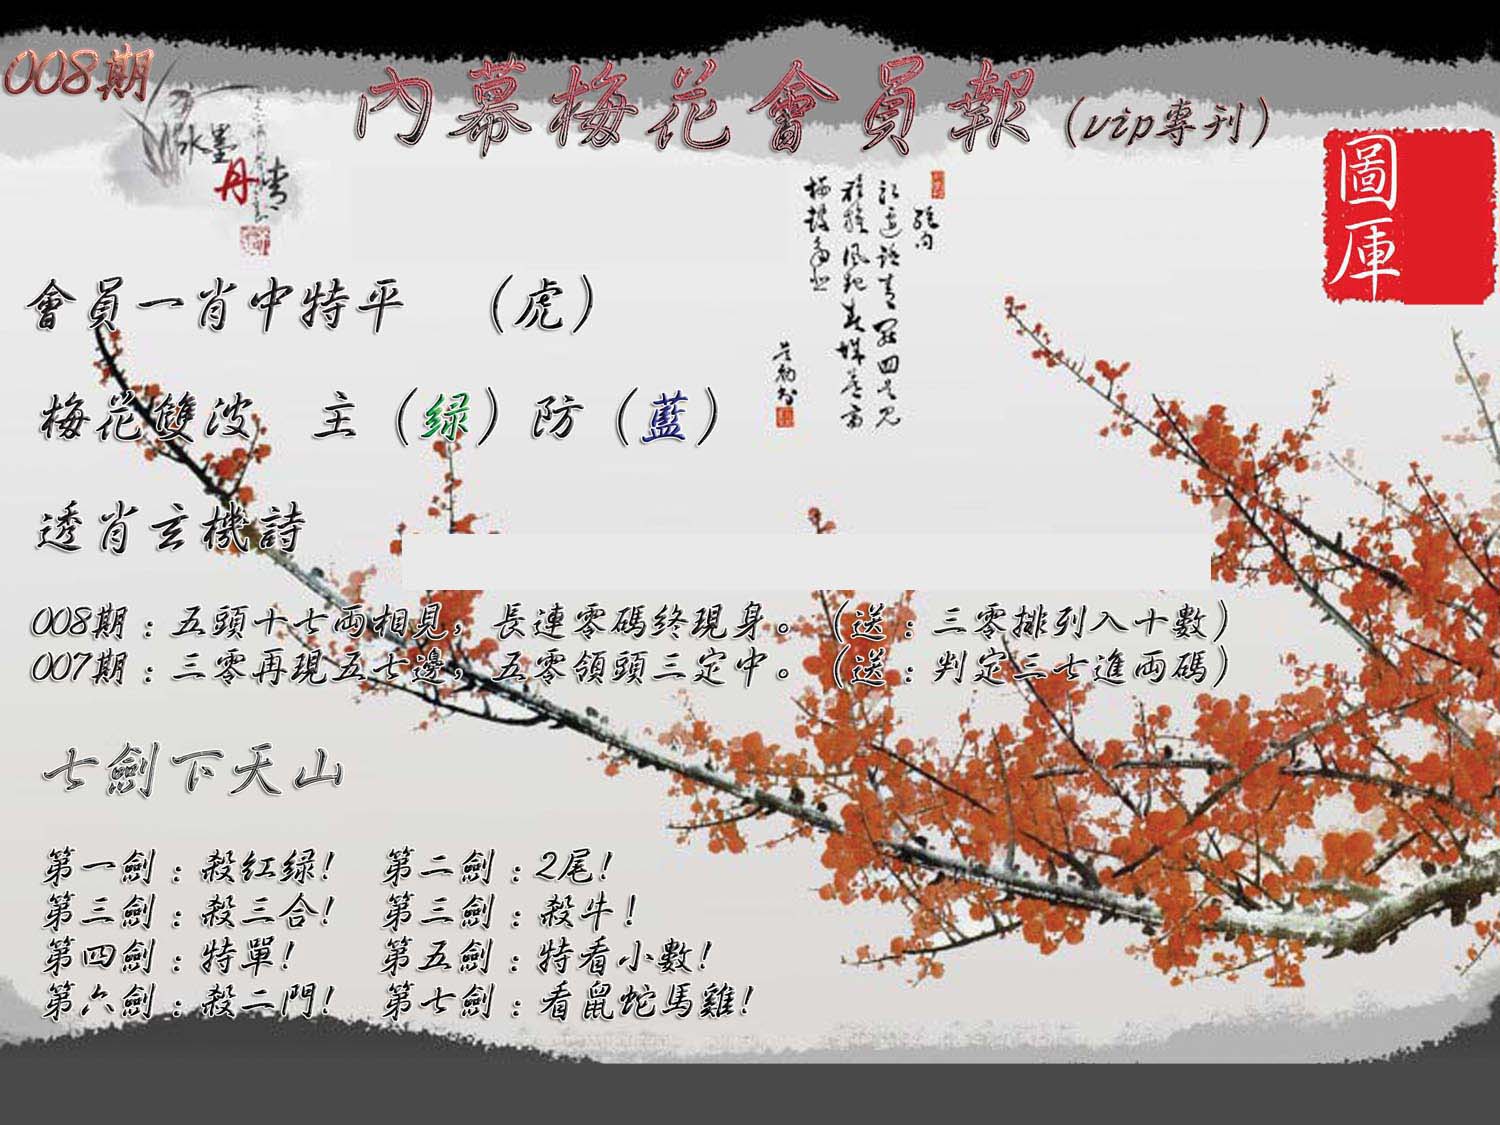 008期
內幕梅花會員報（vip專刊）
水墨
丹青
圖庫
會員一肖中特平 （虎）
梅花雙波 主（绿）防（藍）
透肖玄機詩
008期：五頭十七兩相見，長連零碼終現身。（送：三零排列入十數）
007期：三零再現五七邊，五零領頭三定中。（送：判定三七進兩碼）
七劍下天山
第一劍：殺紅绿！ 第二劍：2尾！
第三劍：殺三合！ 第三劍：殺牛！
第四劍：特單！ 第五劍：特看小數！
第六劍：殺二門！ 第七劍：看鼠蛇馬雞！